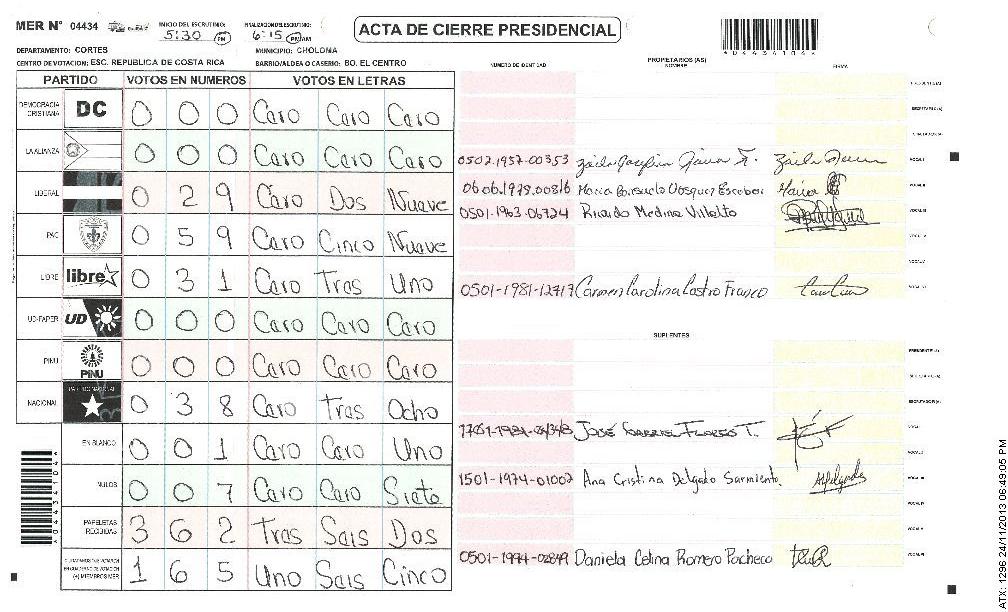 MER N° 04434
INICIO DEL ESCRUTINIO: 5:30 PM
FINALIZACION DEL ESCRUTINIO: 6:15 PM AM
ACTA DE CIERRE PRESIDENCIAL
DEPARTAMENTO: CORTES
MUNICIPIO: CHOLOMA
CENTRO DE VOTACION: ESC. REPUBLICA DE COSTA RICA
BARRIO/ALDEA O CASERIO: BO. EL CENTRO
PARTIDO VOTOS EN NUMEROS VOTOS EN LETRAS
DEMOCRACIA CRISTIANA DC 0 0 0 Caro Caro Caro
LA ALIANZA 0 0 0 Caro Caro Caro
LIBERAL 0 2 9 Caro Dos Nuave
PAC 0 5 9 Caro Cinco Nuave
LIBRE libre 0 3 1 Caro Tras Uno
UD-FAPER UD 0 0 0 Caro Caro Caro
PINU PINU 0 0 0 Caro Caro Caro
NACIONAL 0 3 8 Caro Tras Ocho
EN BLANCO 0 0 1 Caro Caro Uno
NULOS 0 0 7 Caro Caro Siata
PAPELETAS RECIBIDAS 3 6 2 Tras Sais Dos
(+) MIEMBROS MER 1 6 5 Uno Sais Cinco
PROPIETARIOS (AS)
NUMERO DE IDENTIDAD NOMBRE FIRMA
0502-1957-00353
0606-1979-00816 Maria Consuelo Vasquez Escobar
0501-1963-06724 Ricardo Medina Villalto
0501-1981-12717 Carmen Carolina Castro Franco
SUPLENTES
PRESIDENTE (A)
JOSÉ GABRIEL FLORES T.
1501-1974-01002 Ana Cristina Delgado Sarmiento
0501-1994-02849 Daniela Celina Romero Pacheco
ATX: 1296 24/11/2013 06:49:05 PM